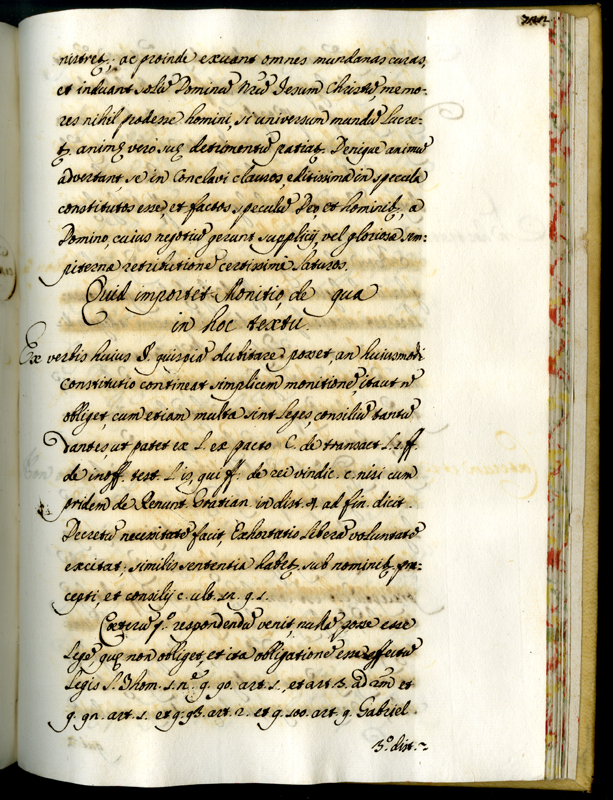 nistret; ac proinde exuant omnes mundanas curas,
et induant solū Dominū Nr̄ū Iesum Christū, memo-
res nihil prodesse homini, si universum mundū lucre-
tʒ, animę vero suę detrimentū patiatʒ. Deniqe animū
advertant, se in Conclavi clausos, editissima in specula
constitutos esse, et factos speculū Deo, et hominibʒ, a
Domino, cuius negotiū gerunt supplicij, vel gloriosā sem-
piternā retributionē certissimē laturos.
Quid importet Monitio, de qua
in hoc textu.
Ex verbis huius §. quispiā dubitare posset an huiusmodi
Constitutio contineat simplicem monitionē, ita ut nō
obliget, cum etiam multa sint leges, consiliū tantū
dantes ut patet ex l. ex pacto C. de transact. l. ff.
de inoff. test. l. is, qui ff. de rei vindic. c. nisi cum
pridem de Renunt. Gratian. in dist. 4. ad fin. dicit.
Decretū necessitatē facit, Exhortatio liberā voluntatē
excitat. similis sententia habetʒ sub nominibʒ prę-
cepti, et consilij c. ult. 14. q. 1.
Cęterū pº. respondendū venit, nullā posse esse
legē, quę non obliget, et ita obligationē esse effectū
legis S. Thom. 1. 2.ę q. 90. art. 1., et art. 3. ad 2m et
q. 92. art. 1. et q. 93. art. 2. et q. 100. art. 9. Gabriel.
3.º dist.